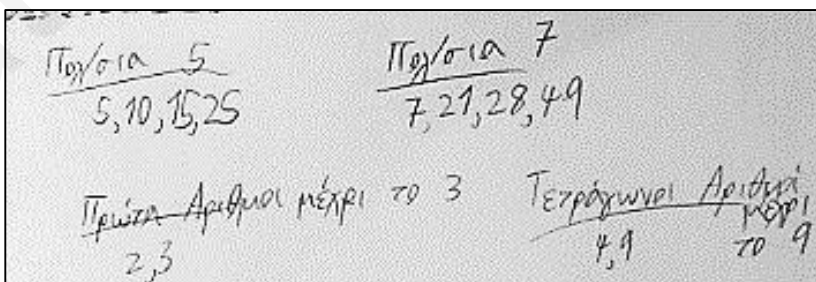 Πολ/σια 5
5,10,15,25
Πολ/σια 7
7,21,28,49
Πρώτα Αριθμοι μέχρι το 3
2,3
Τετράγωνοι Αριθμοί
μέχρι
το 9
4,9